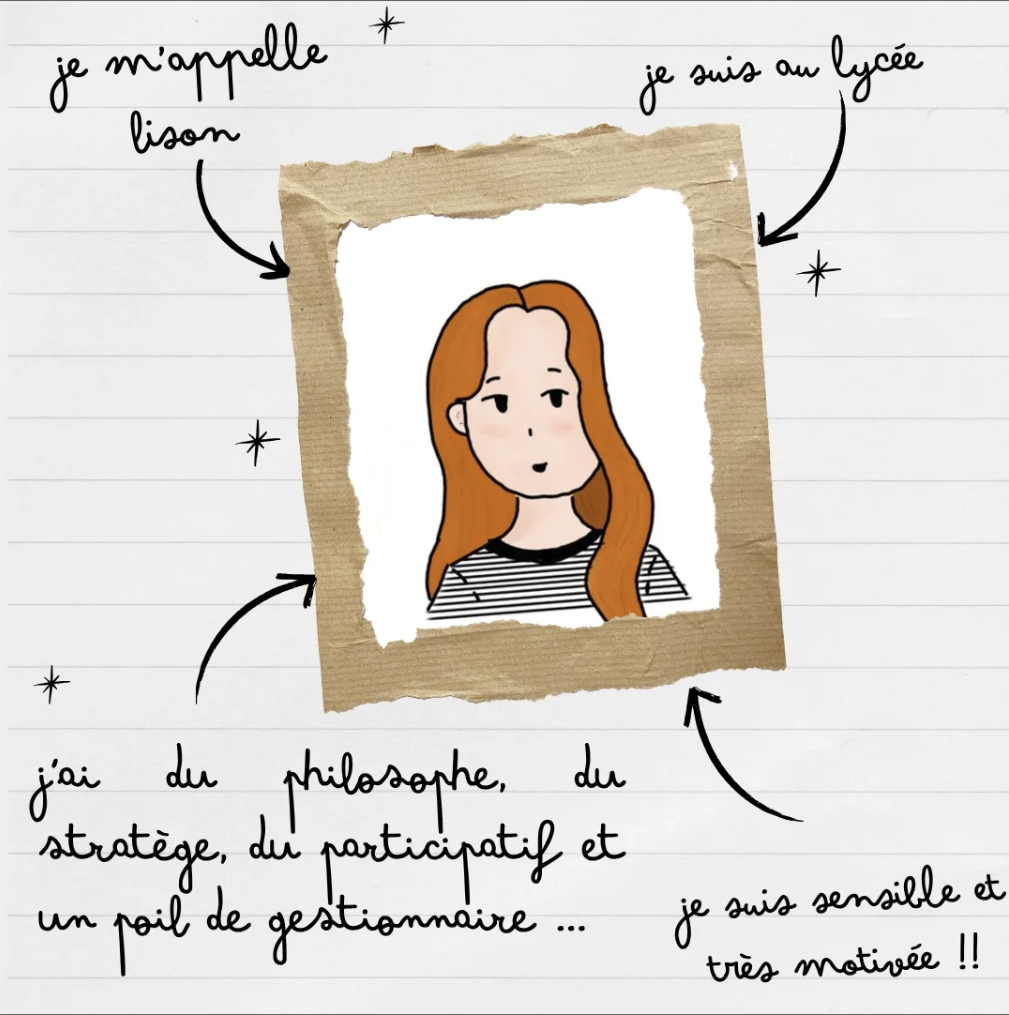 je m'appelle
lison
je suis au lycée
j'ai du philosophe, du
stratège, du participatif et
un poil de gestionnaire ...
je suis sensible et
très motivée !!